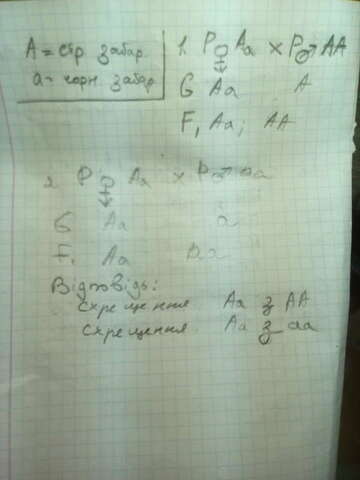 A = сір забар.
a - чорн. забар
1. P ♀ Aa × P ♂ AA
G Aa A
F₁ Aa; AA
2. P ♀ Aa × P ♂ aa
G Aa a
F₁ Aa
Відповідь:
схрещення Aa з AA
схрещення Aa з aa